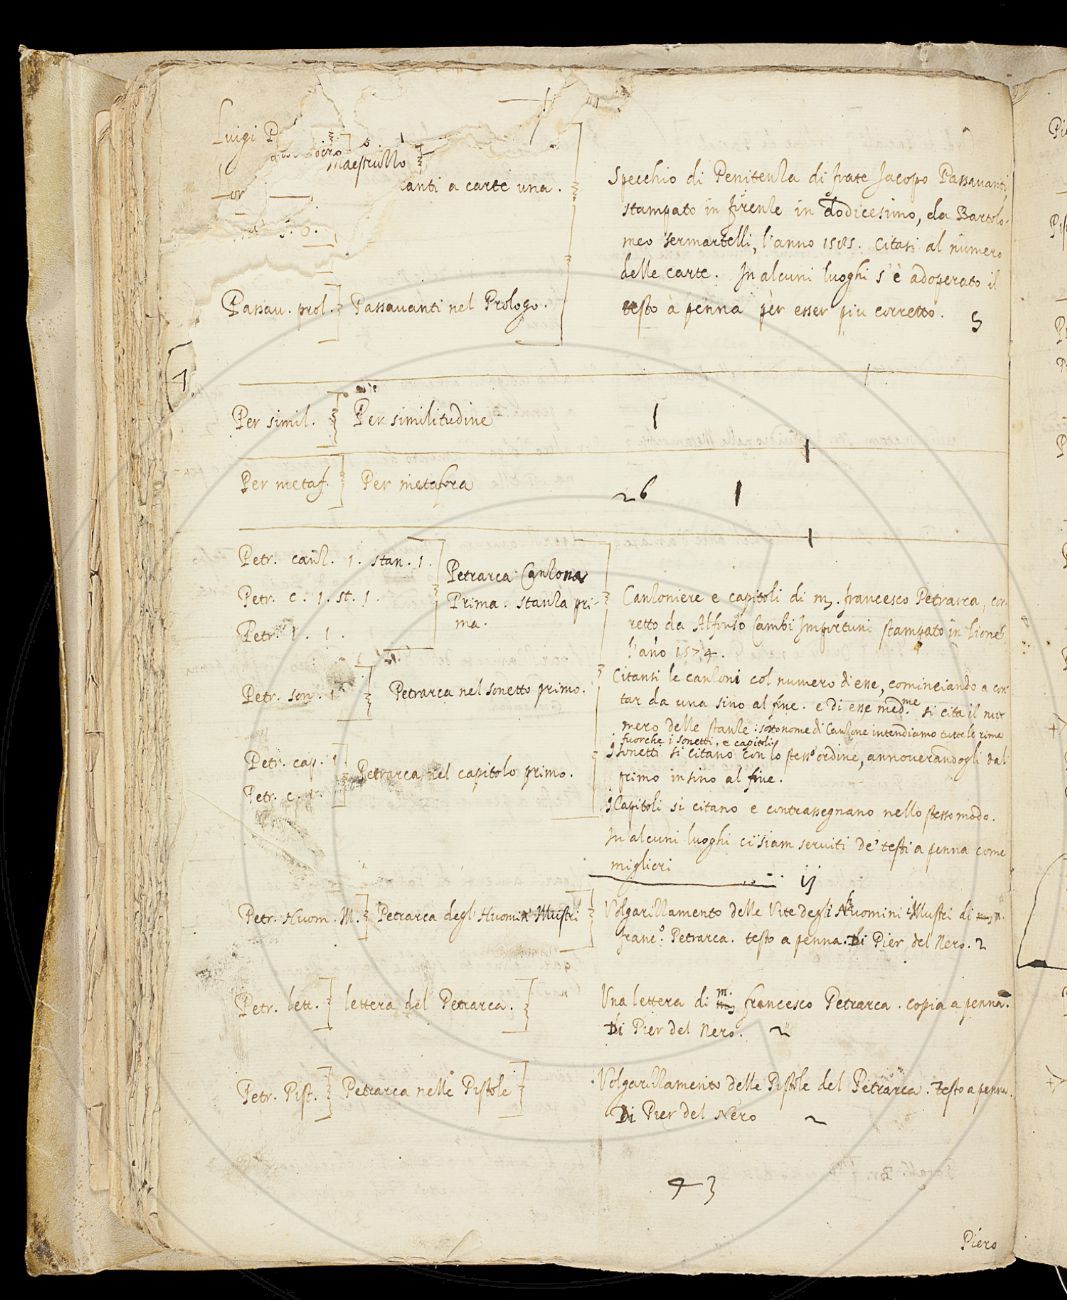 Luigi P
maestrillo
anti a carte una.
Specchio di Penitenza di frate Jacopo Passavanti
stampato in firenze in dodicesimo, da Bartolo-
meo Sermartelli, l'anno 1585. Citasi al numero
delle carte. In alcuni luoghi s'è adoperato il
testo a penna per esser piu corretto. 5
Passav. prol. Passavanti nel Prologo.
1
Per simil. Per similitudine 1
1
Per metaf. Per metafora 26 1
1
Petr. canz. 1. stan. 1.
Petr. c. 1. st. 1.
Petr. 1. 1.
Petrarca Canzona
Prima. Stanza pri-
ma.
Petr. son. 1 Petrarca nel sonetto primo.
Petr. cap. 1
Petr. c. 1.
Petrarca nel capitolo primo.
Canzoniere e capitoli di m. francesco Petrarca, cor
retto da Alfonso Cambi Importuni stampato in Lione
l'año 1574.
Citansi le canzoni col numero d'esse, cominciando a con
tar da una sino al fine. e Di esse med.me si cita il nu
mero delle stanze: sotto nome di Canzone intendiamo tutte le rime
fuorchè i sonetti, e capitoli
I sonetti si citano con lo stess'ordine, annoverandogli dal
primo insino al fine.
I Capitoli si citano e contrassegnano nello stesso modo.
In alcuni luoghi ci siam serviti de' testi a penna come
miglieri ij
Petr. Huom. Ill. Petrarca degl'Huomin Illustri
Volgarizzamento delle Vite degli Huomini Illustri di m.
franc.o Petrarca. testo a penna. Di Pier del Nero. 2
Petr. lett. lettera del Petrarca.
Una lettera di m. francesco Petrarca. copia a penna.
Di Pier del Nero. 2
Petr. Pist. Petrarca nelle Pistole
Volgarizzamento delle Pistole del Petrarca. Testo a penna.
Di Pier del Nero 2
43
Piero